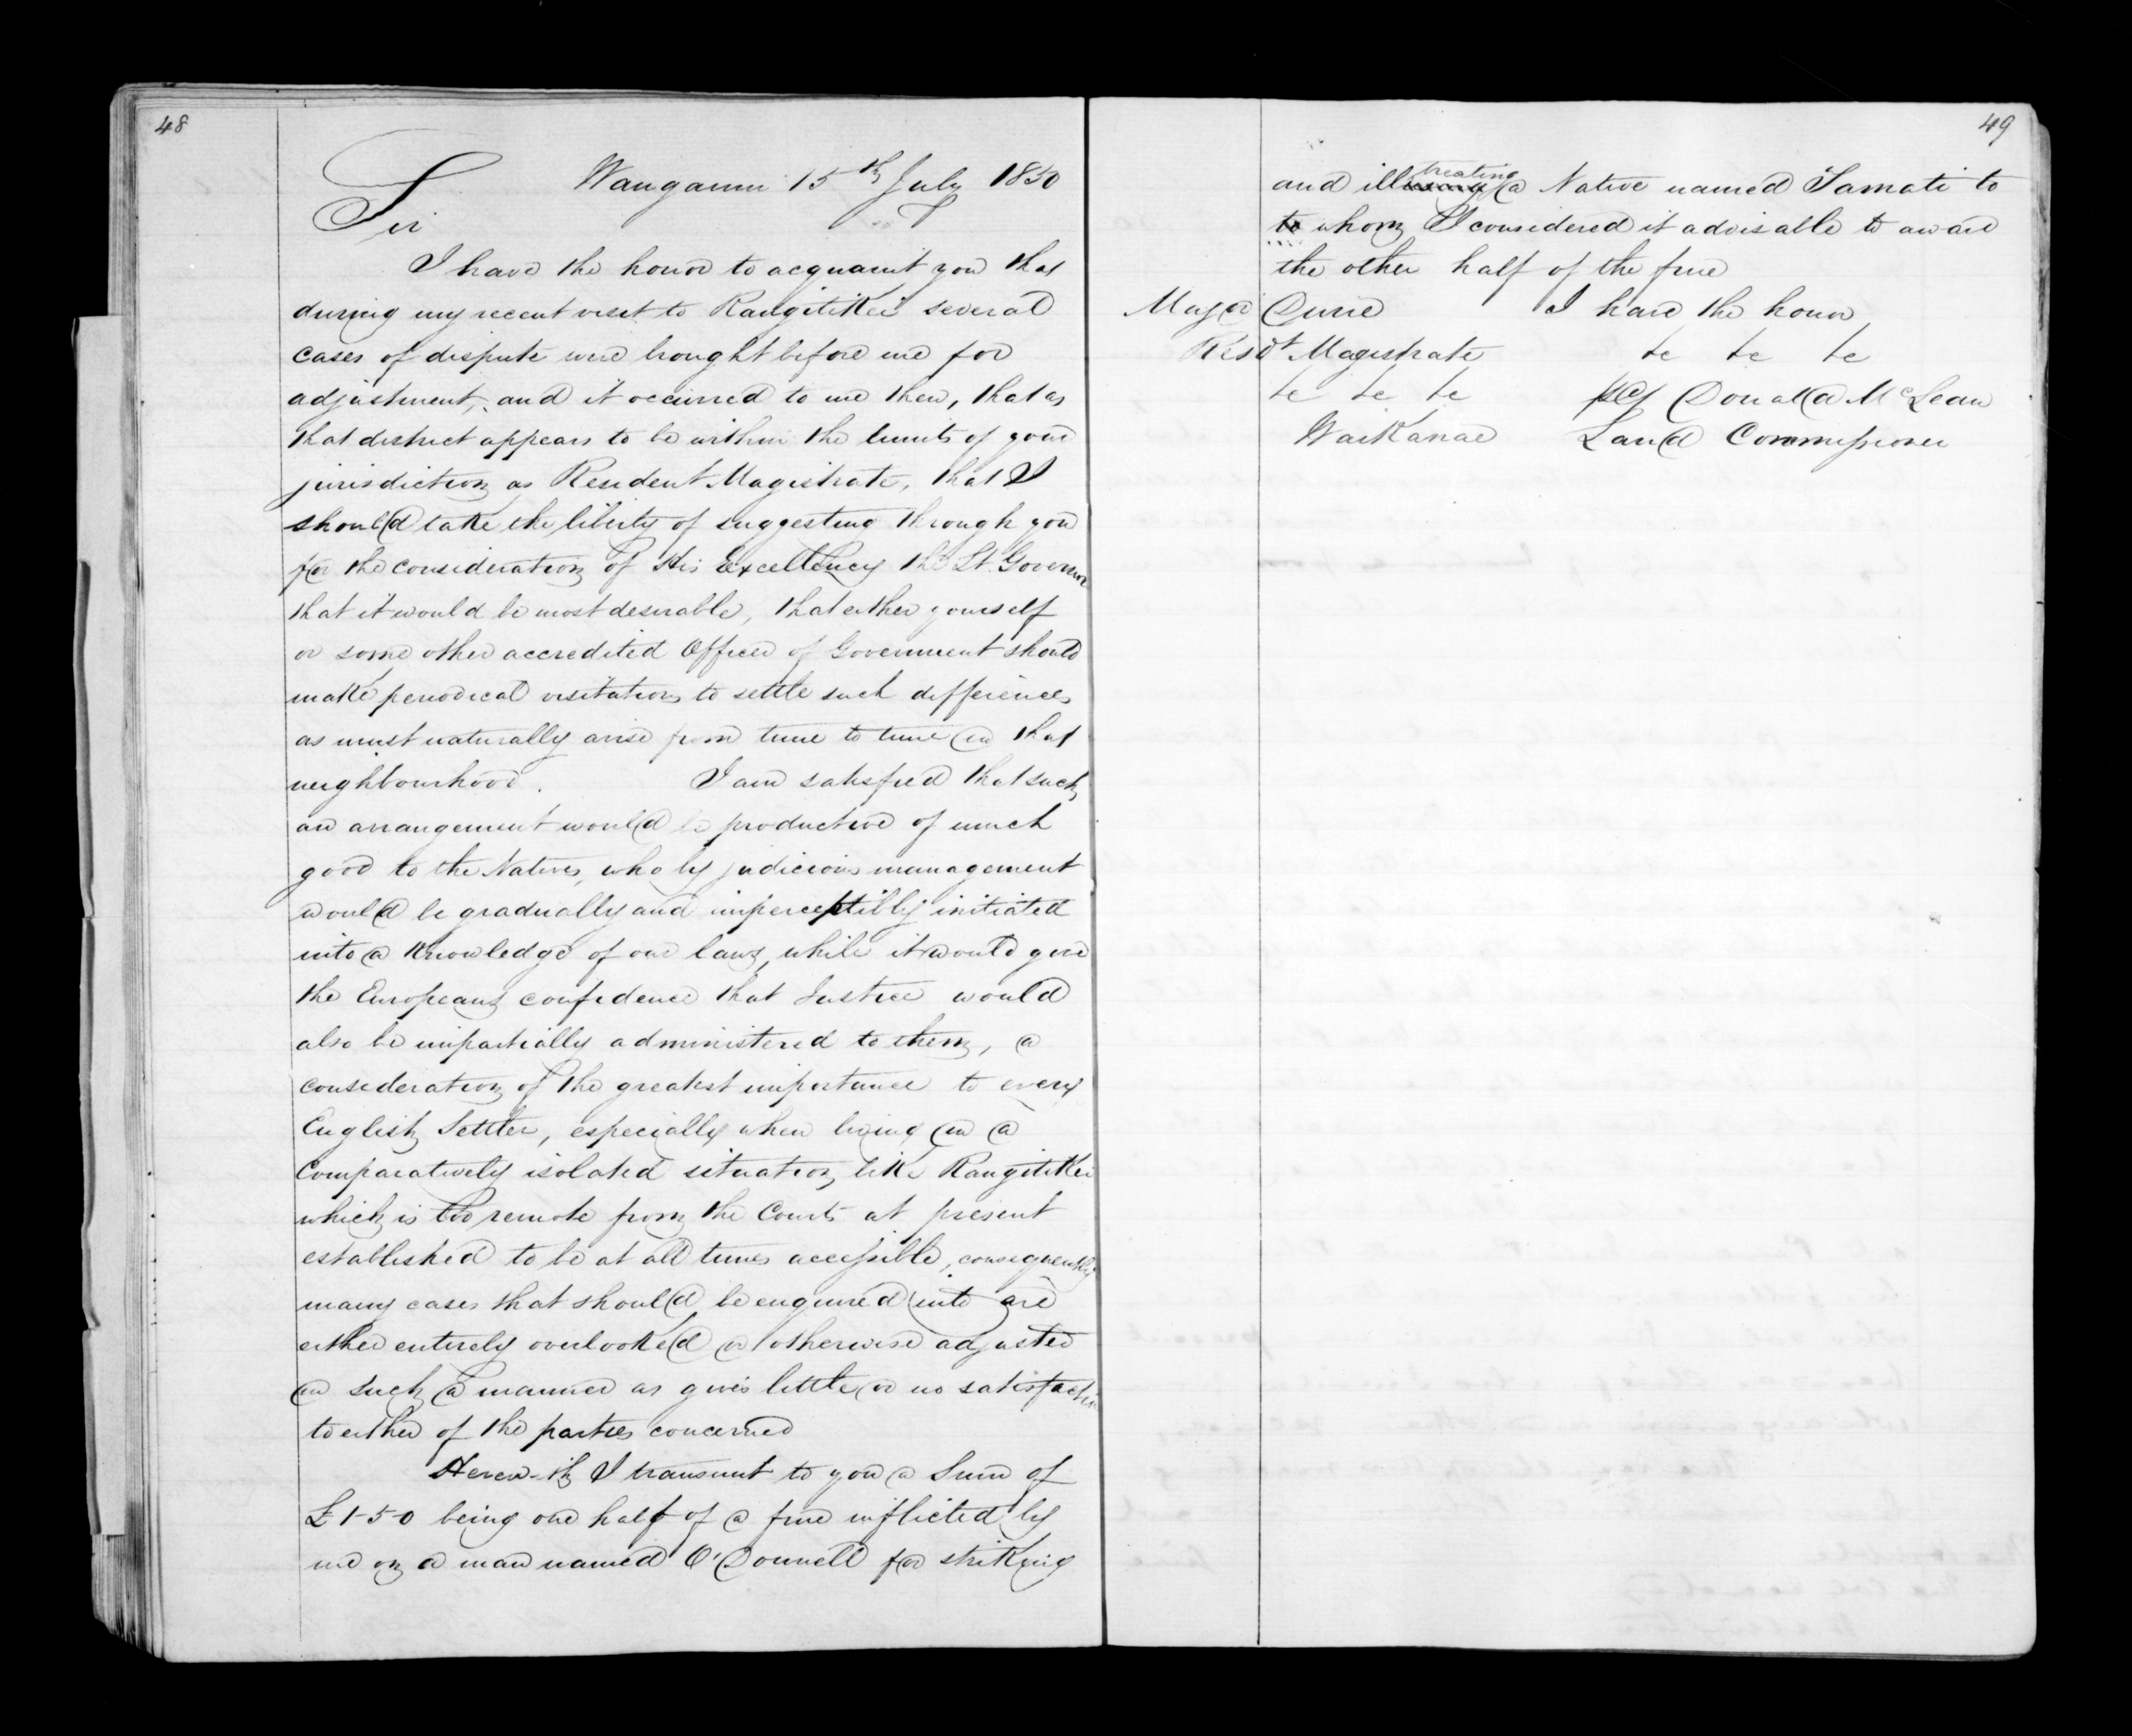 48
Wanganui 15th July 1850
Sir
I have the honor to acquaint you that
during my recent visit to Rangitikei several
cases of dispute were brought before me for
adjustment, and it occurred to me then, that as
that district appears to be within the limits of your
jurisdiction as Resident Magistrate, that I
should take the liberty of suggesting through you
for the consideration of His Excellency the Lt. Governor
that it would be most desirable, that either yourself
or some other accredited Officer of Government should
make periodical visitations to settle such differences
as must naturally arise from time to time in that
neighbourhood. I am satisfied that such
an arrangement would be productive of much
good to the Natives, who by judicious management
would be gradually and imperceptibly initiated
into a Knowledge of our laws, while it would give
the Europeans confidence that Justice would
also be impartially administered to them, a
consideration of the greatest importance to every
English Settler, especially when living in a
Comparatively isolated situation, like Rangitikei
which is too remote from the Courts at present
established to be at all times accessible, consequently
many cases that should be enquired into are
either entirely overlooked or otherwise adjusted
in such a manner as gives little or no satisfaction
to either of the parties concerned
Herewith I transmit to you a Sum of
£1-5-0 being one half of a fine inflicted by
me on a man named O'Donnell for striking
49
and ill using treating a Native named Tamati to
to whom I considered it advisable to award
the other half of the fine
Major Durie I have the honor
Resdt Magistrate &c &c &c
&c &c &c sg Donald McLean
Waikanae Land Commissioner